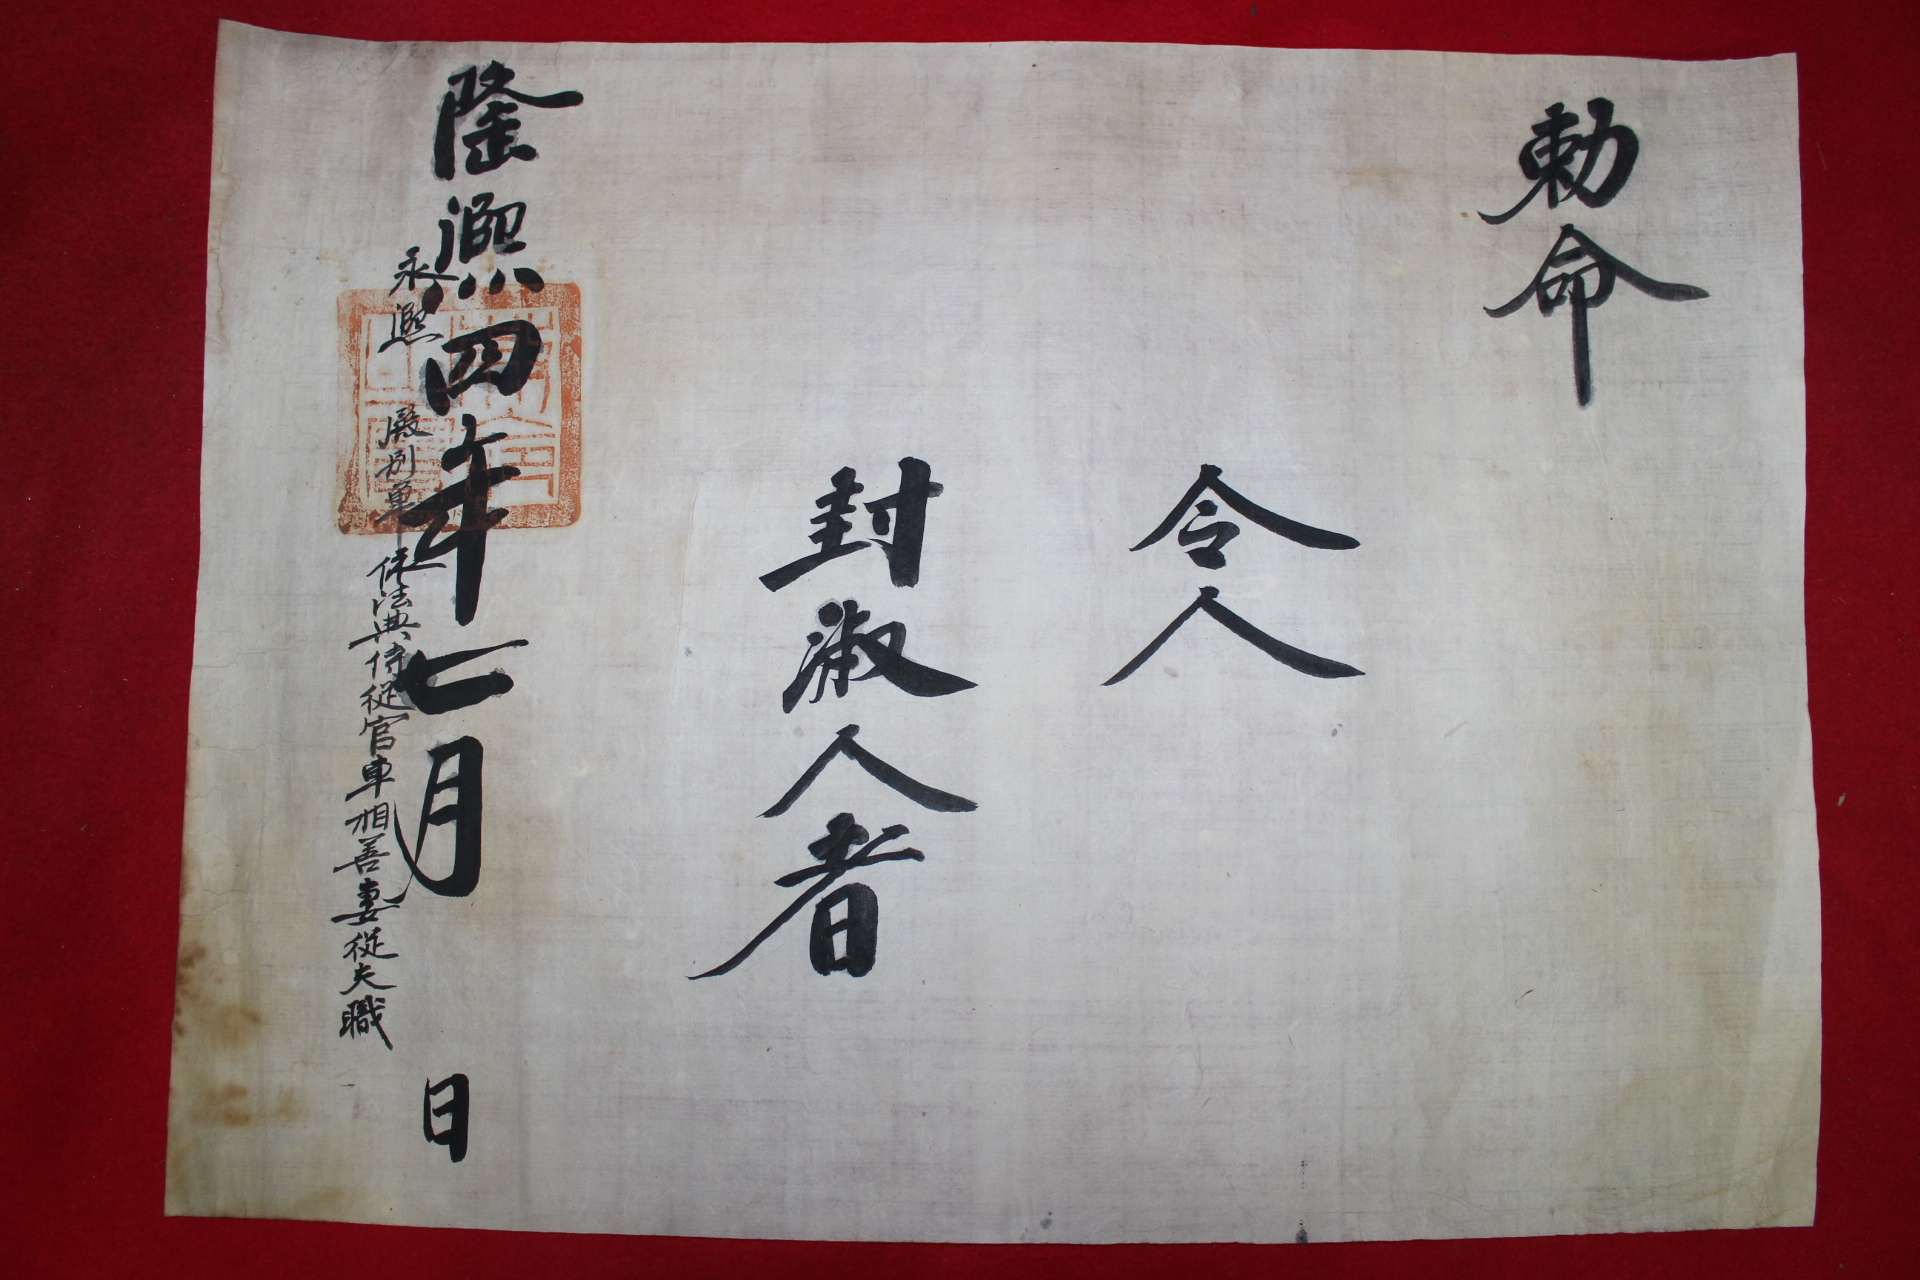 勅命
令人
封淑人者
隆熙四年七月 日
永熙 殿別單 依法典侍從官車相善妻從夫職